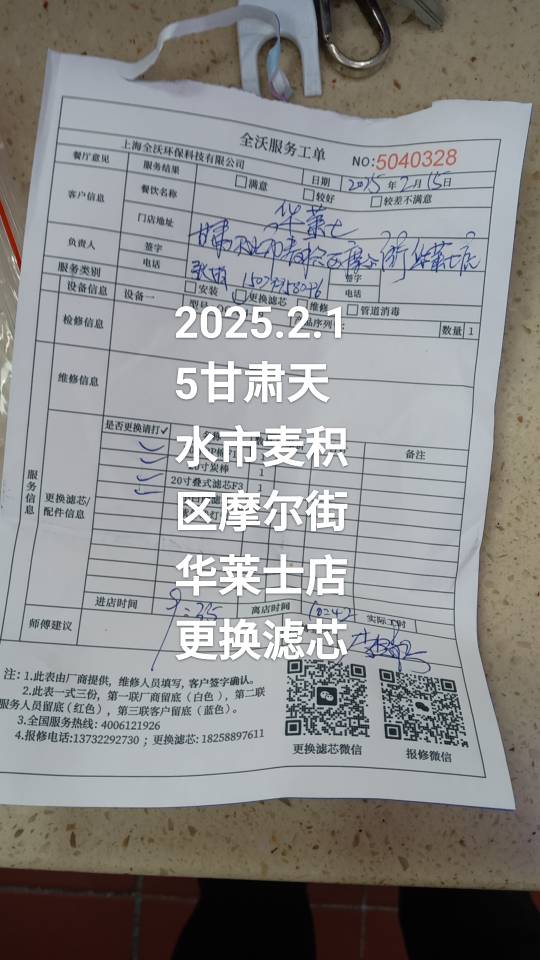 全沃服务工单
上海全沃环保科技有限公司 NO:5040328
餐厅意见 服务结果 满意 日期 2025年2月15日
较好 较差不满意
客户信息 餐饮名称 华莱士
门店地址 甘肃天水市麦积区摩尔街华莱士店
负责人 签字 签字
电话 电话
服务类别 安装 更换滤芯 维修 管道消毒
设备信息 设备一 型号 数量 1
检修信息
维修信息
服务信息
是否更换请打✓ 备注
寸炭棒 1
20寸叠式滤芯F3 1
更换滤芯/
配件信息
进店时间 离店时间 10:42 实际工时
师傅建议
注: 1.此表由厂商提供, 维修人员填写, 客户签字确认。
2.此表一式三份, 第一联厂商留底 (白色), 第二联
服务人员留底 (红色), 第三联客户留底 (蓝色)。
3.全国服务热线: 4006121926
4.报修电话:13732292730 ; 更换滤芯: 18258897611
更换滤芯微信 报修微信
2025.2.1
5甘肃天
水市麦积
区摩尔街
华莱士店
更换滤芯